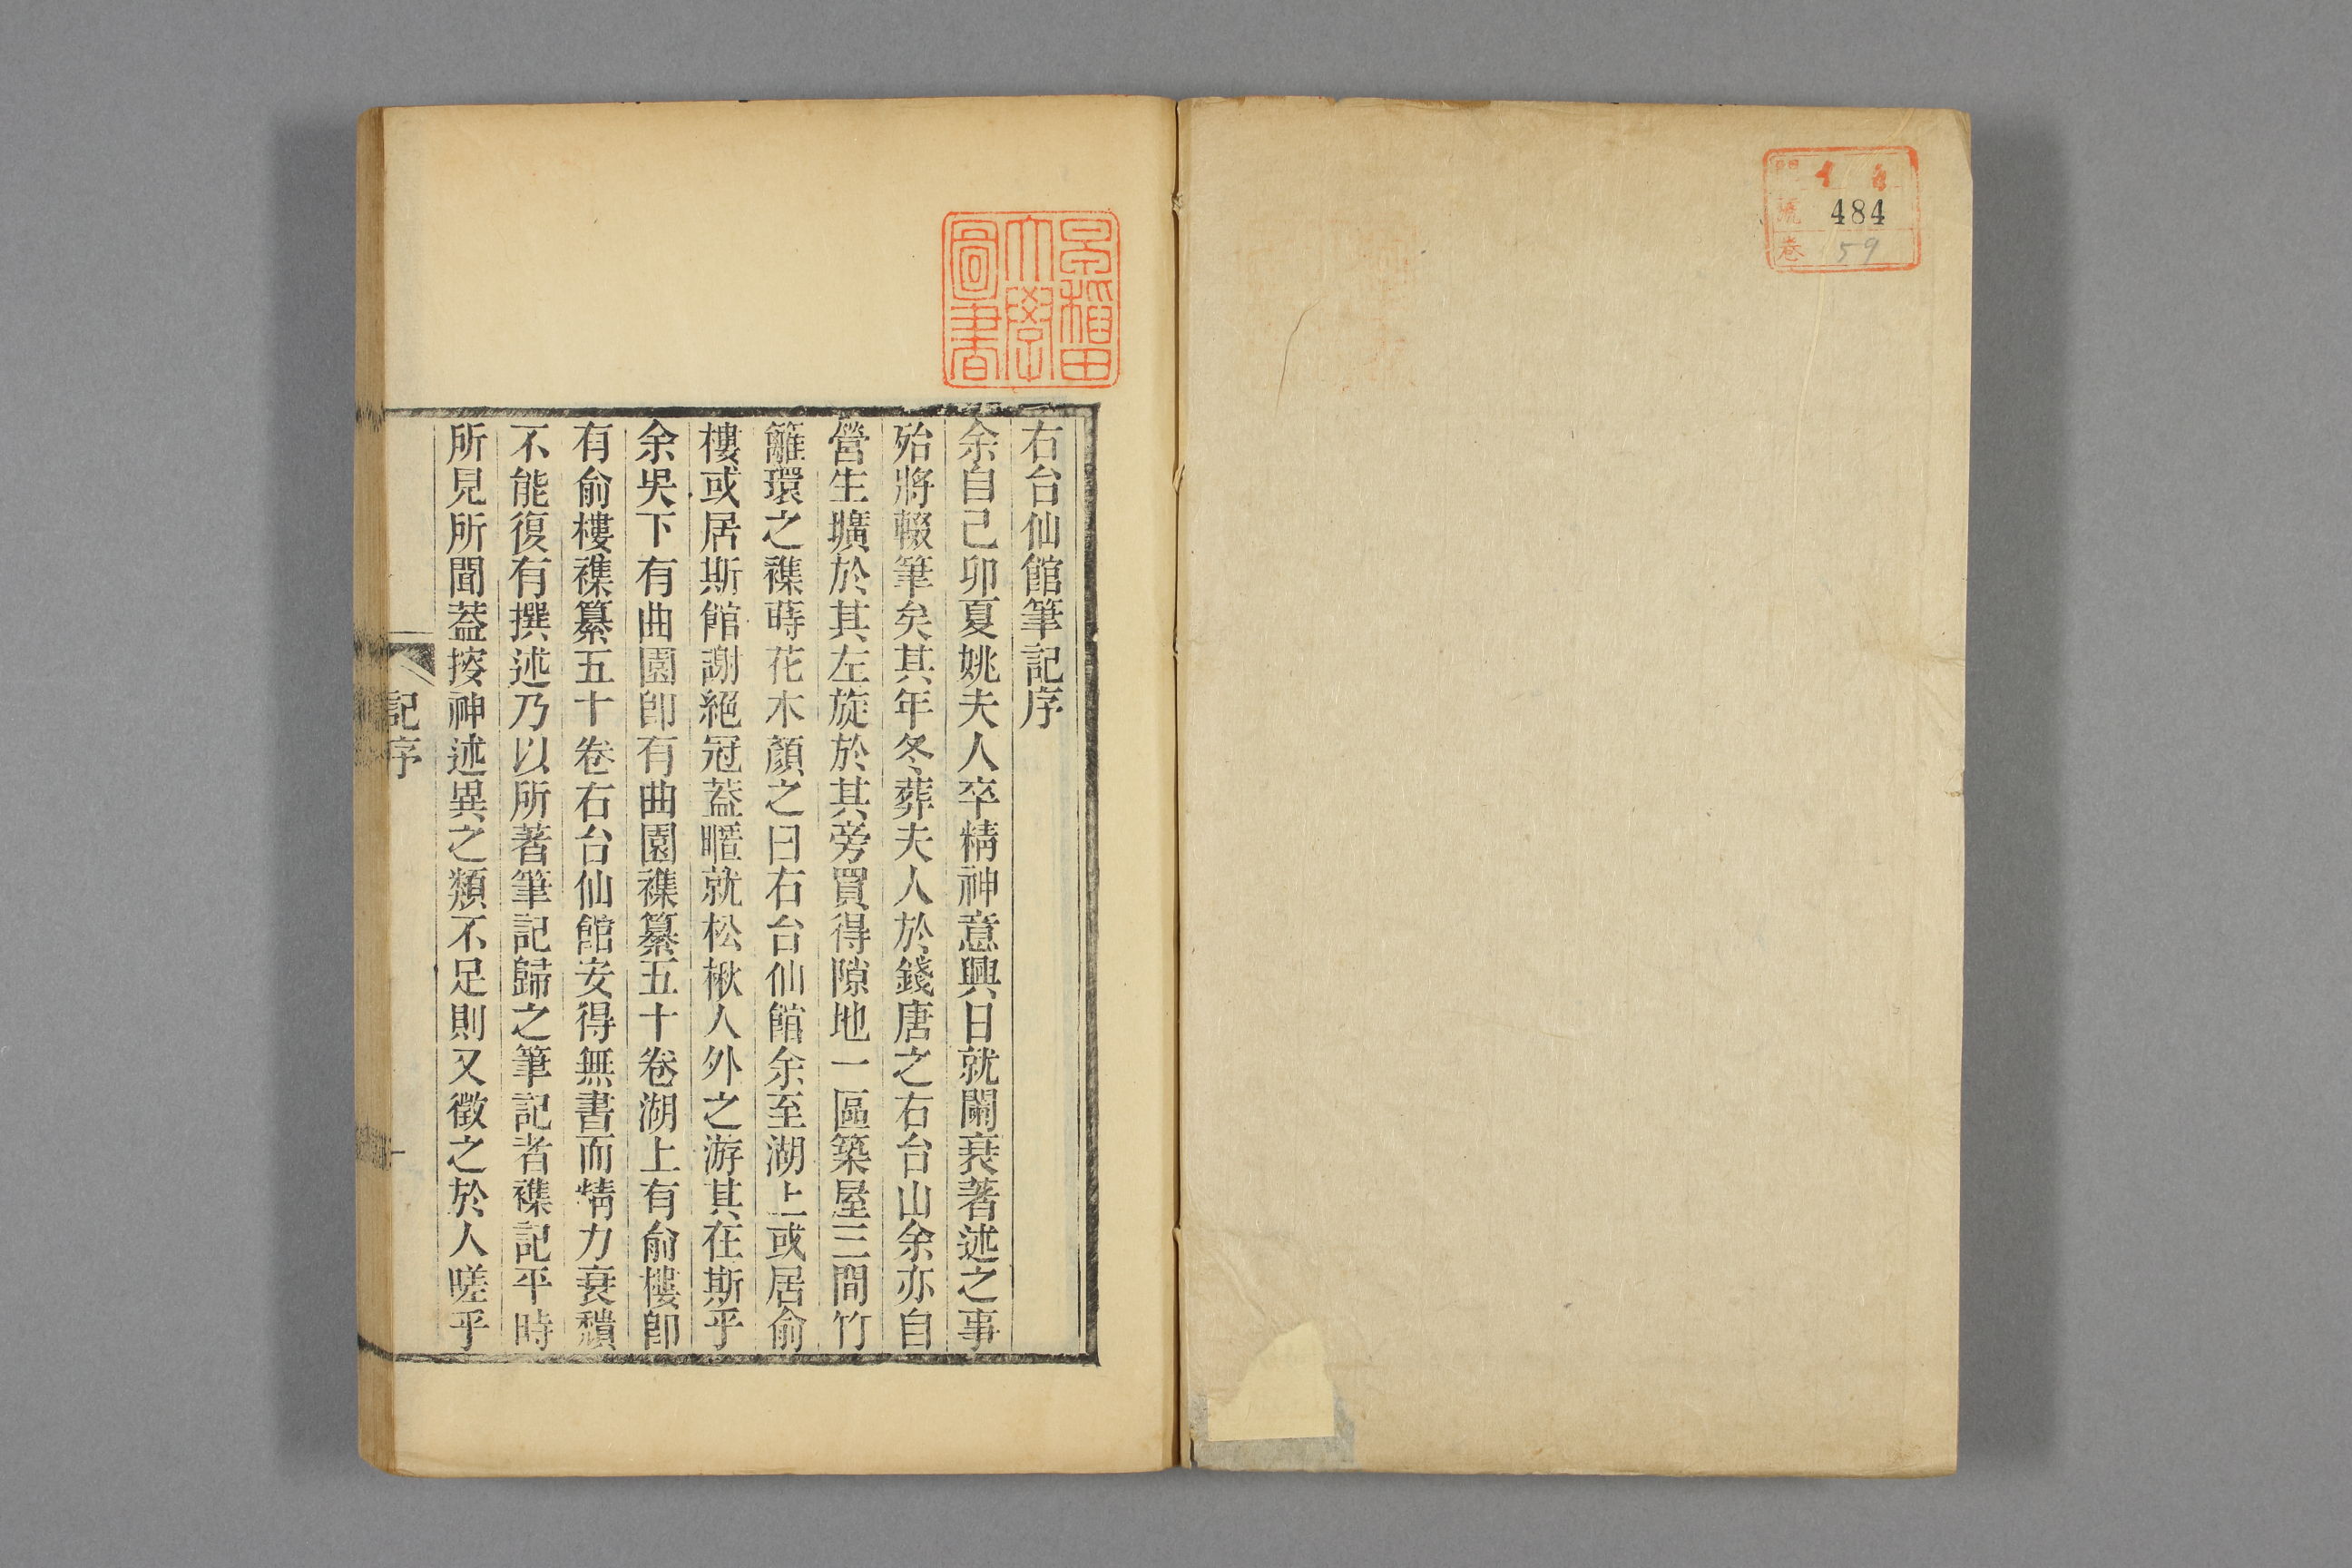 門 イ 5
號 484
卷 59
早稲田
大學
圖書
右台仙館筆記序
余自己卯夏姚夫人卒精神意興日就闌衰著述之事
殆將輟筆矣其年冬葬夫人於錢唐之右台山余亦自
營生壙於其左旋於其旁買得隙地一區築屋三間竹
籬環之襍蒔花木顏之曰右台仙館余至湖上或居俞
樓或居斯館謝絕冠葢暱就松楸人外之游其在斯乎
余吳下有曲園卽有曲園襍纂五十卷湖上有俞樓卽
有俞樓襍纂五十卷右台仙館安得無書而精力衰穨
不能復有撰述乃以所著筆記歸之筆記者襍記平時
所見所聞葢搜神述異之類不足則又徵之於人嗟乎
記序
一